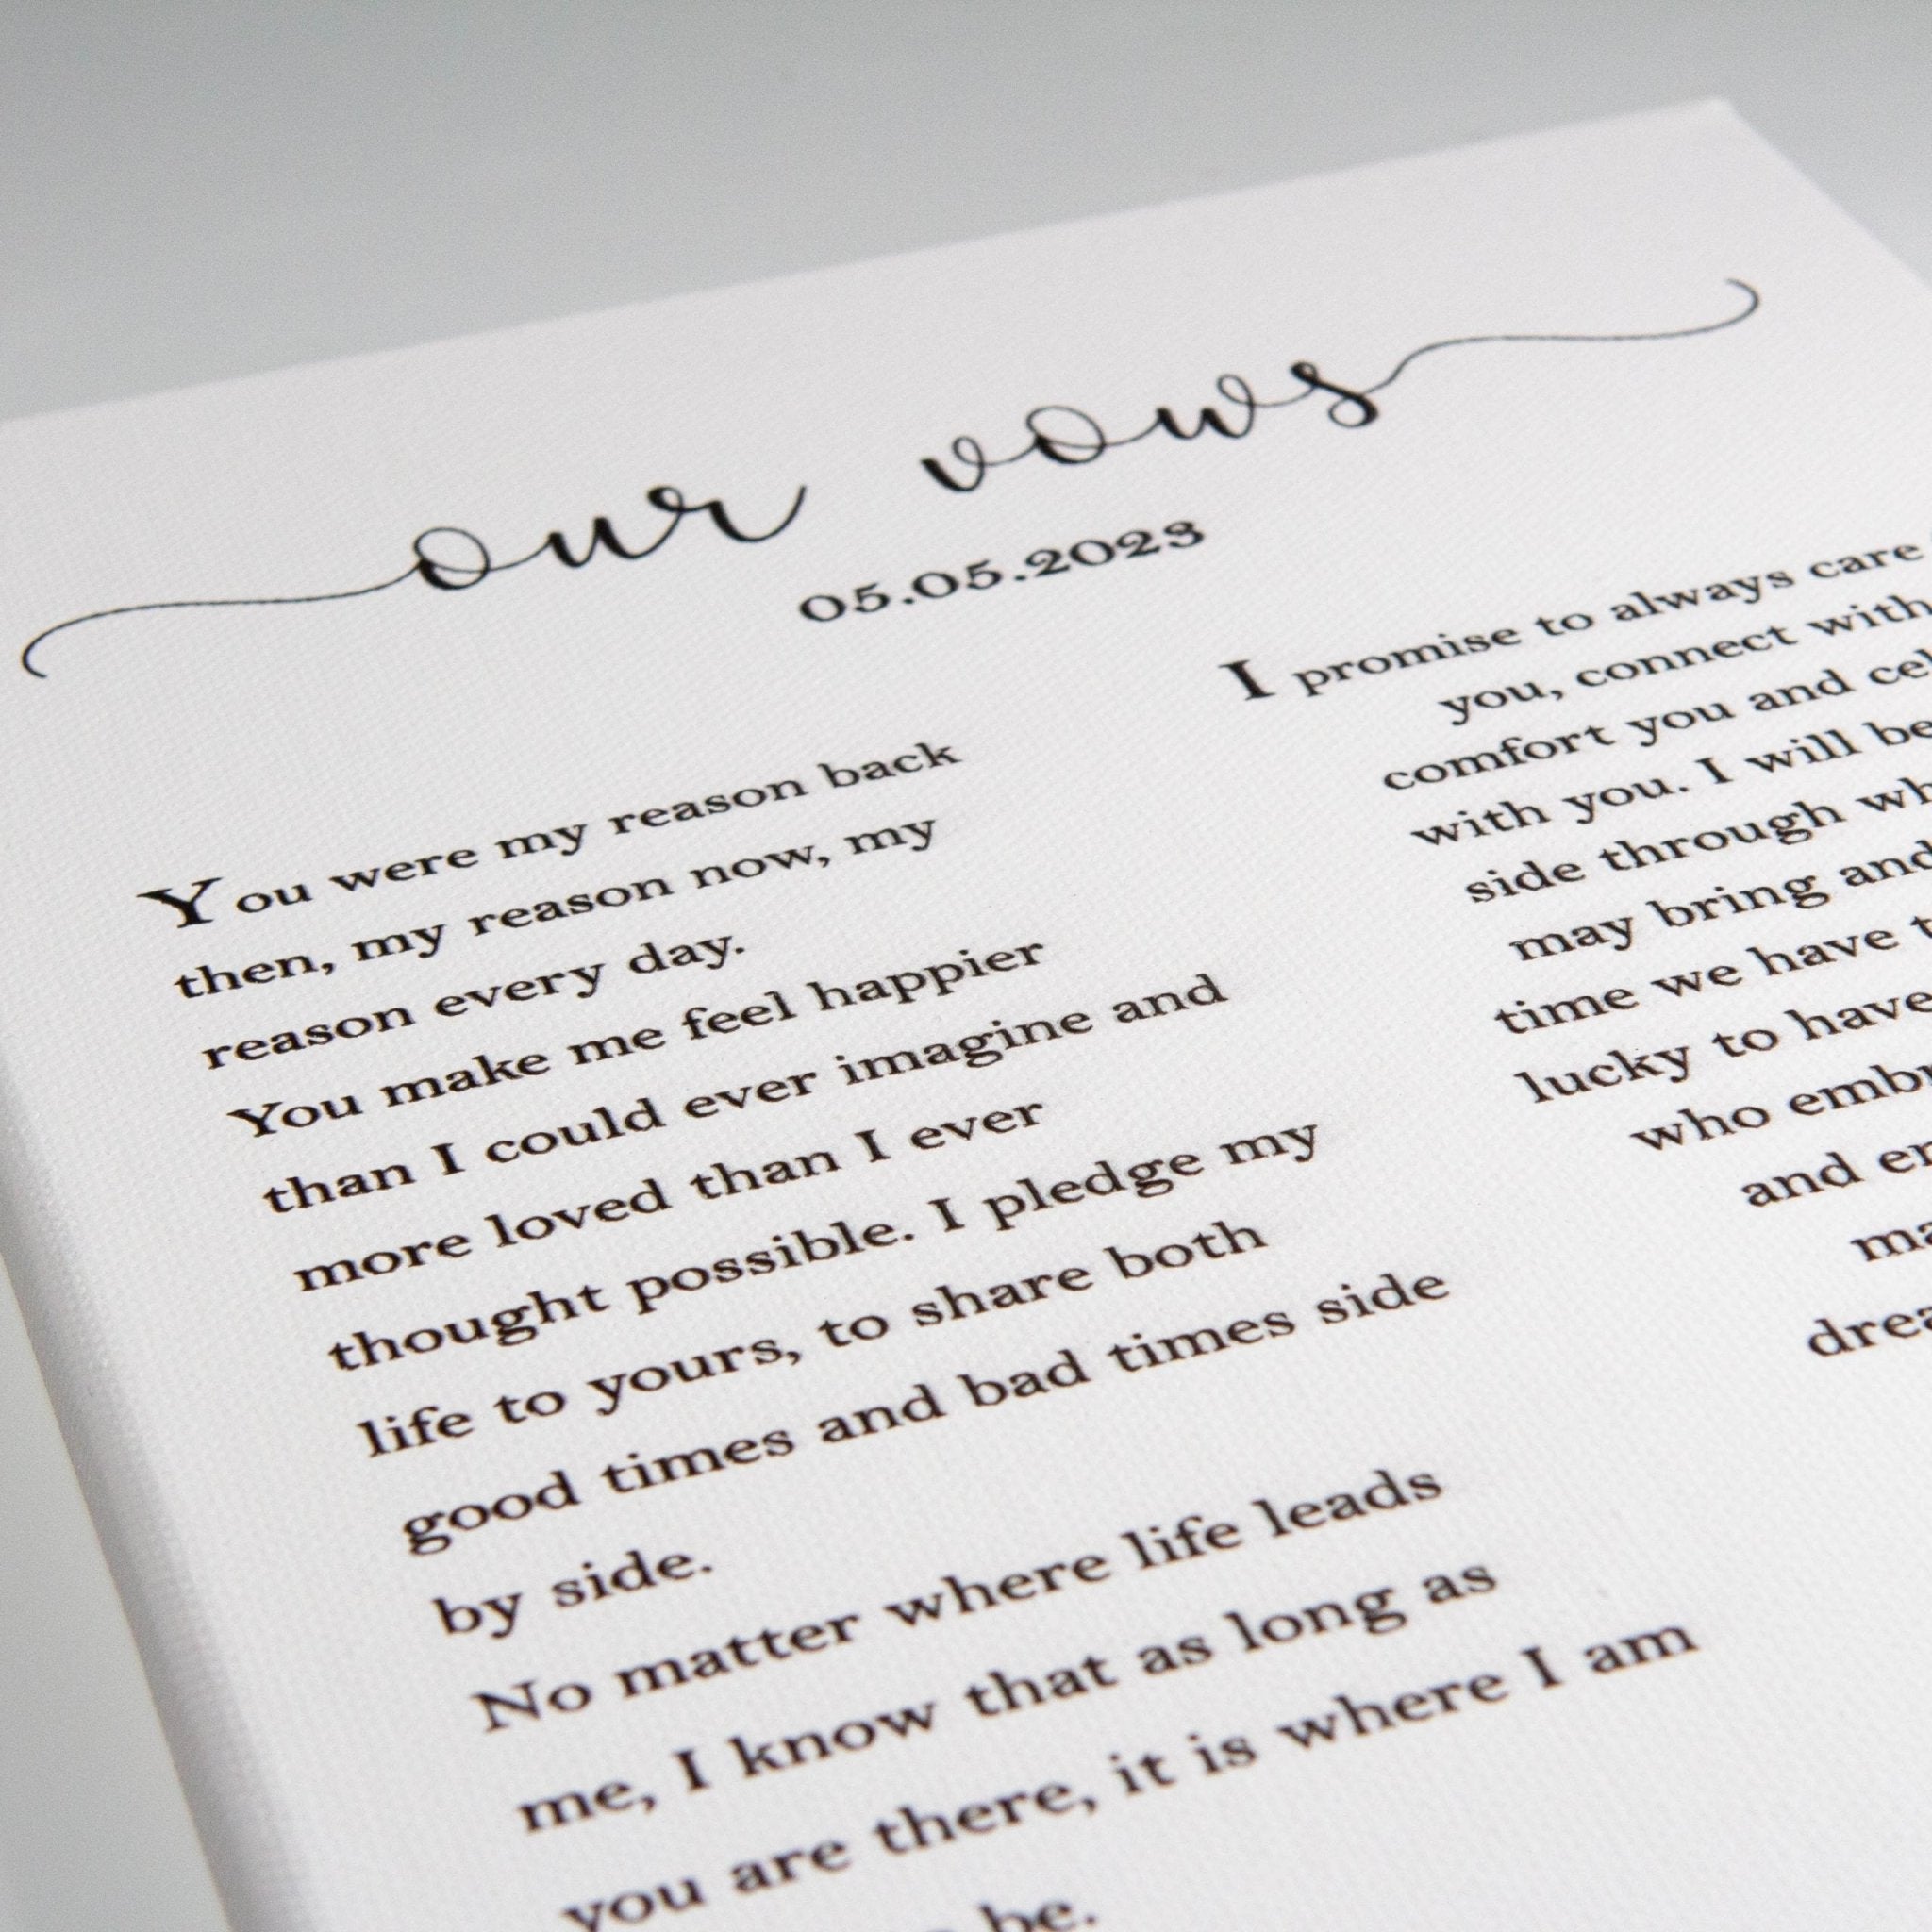 our vows
05.05.2023
You were my reason back
then, my reason now, my
reason every day.
You make me feel happier
than I could ever imagine and
more loved than I ever
thought possible. I pledge my
life to yours, to share both
good times and bad times side
by side.
No matter where life leads
me, I know that as long as
you are there, it is where I am
be.
I promise to always care
you, connect with
comfort you and
with you. I will be
side through
may bring and
time we have
lucky to have
who
and